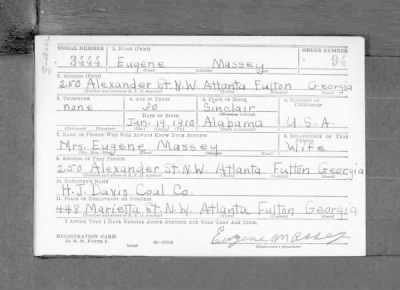 SERIAL NUMBER 1. NAME (Print) ORDER NUMBER
3444 Eugene Massey 94
(First) (Middle) (Last)
2. ADDRESS (Print)
250 Alexander St. N.W. Atlanta Fulton Georgia
3. TELEPHONE 4. AGE IN YEARS 5. PLACE OF BIRTH 6. COUNTRY OF CITIZENSHIP
none 30 Sinclair
DATE OF BIRTH
Jan. 19, 1910 Alabama U.S.A.
(Exchange) (Number) (Mo.) (Day) (Yr.) (State or country)
7. NAME OF PERSON WHO WILL ALWAYS KNOW YOUR ADDRESS 8. RELATIONSHIP OF THAT PERSON
Mrs. Eugene Massey Wife
(Mr., Mrs., Miss) (First) (Middle) (Last)
9. ADDRESS OF THAT PERSON
250 Alexander St. N.W. Atlanta Fulton Georgia
10. EMPLOYER'S NAME
H.J. Davis Coal Co.
11. PLACE OF EMPLOYMENT OR BUSINESS
448 Marietta St. N.W. Atlanta Fulton Georgia
I AFFIRM THAT I HAVE VERIFIED ABOVE ANSWERS AND THAT THEY ARE TRUE.
REGISTRATION CARD
D. S. S. FORM 1 Eugene Massey
(Registrant's signature)